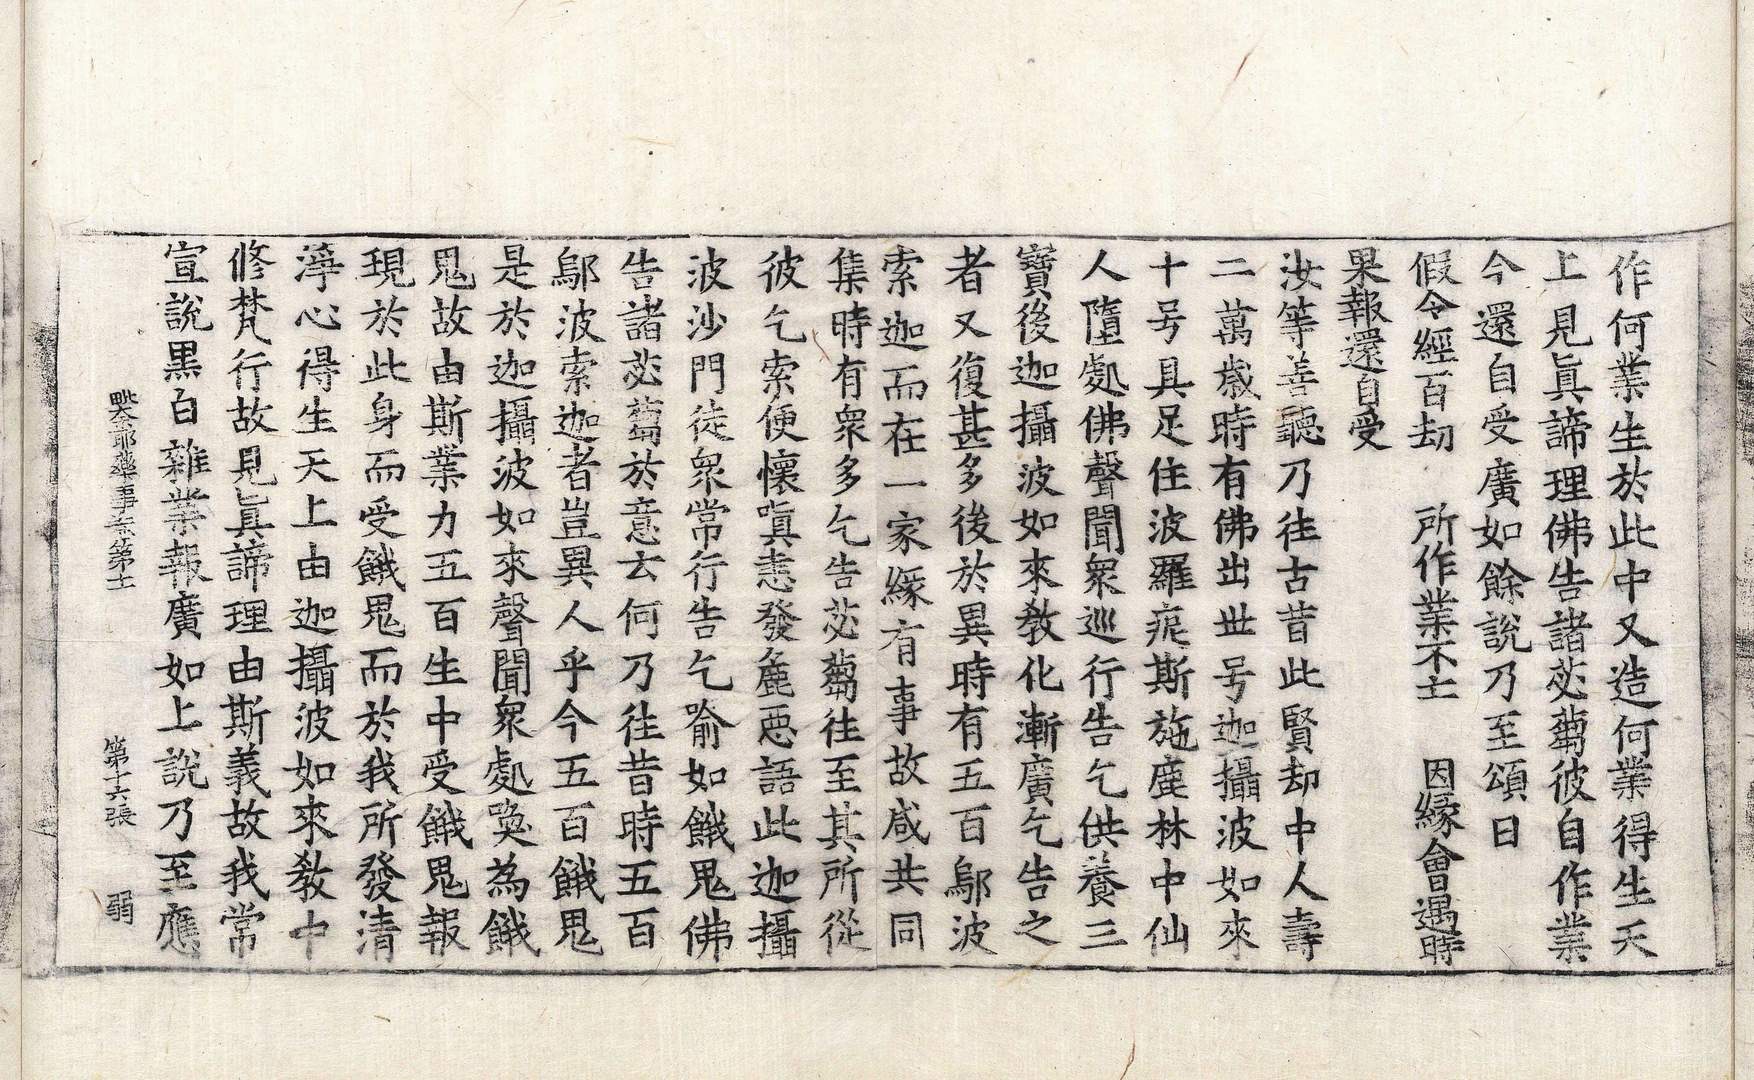 作何業生於此中又造何業得生天
上見眞諦理佛告諸苾蒭彼自作業
今還自受廣如餘說乃至頌曰
假令經百劫　所作業不亡　因緣會遇時
果報還自受
汝等善聽乃往古昔此賢劫中人壽
二萬歲時有佛出世号迦攝波如來
十号具足住波羅痆斯施鹿林中仙
人墮處佛聲聞衆巡行告乞供養三
寶後迦攝波如來教化漸廣乞告之
者又復甚多後於異時有五百鄔波
索迦而在一家緣有事故咸共同
集時有衆多乞告苾蒭往至其所從
彼乞索便懷嗔恚發麁惡語此迦攝
波沙門徒衆常行告乞喻如餓鬼佛
告諸苾蒭於意云何乃往昔時五百
鄔波索迦者豈異人乎今五百餓鬼
是於迦攝波如來聲聞衆處喚為餓
鬼故由斯業力五百生中受餓鬼報
現於此身而受餓鬼而於我所發清
淨心得生天上由迦攝波如來教中
修梵行故見眞諦理由斯義故我常
宣說黑白雜業報廣如上說乃至應
毗奈耶藥事卷第十一　第十六張　弱